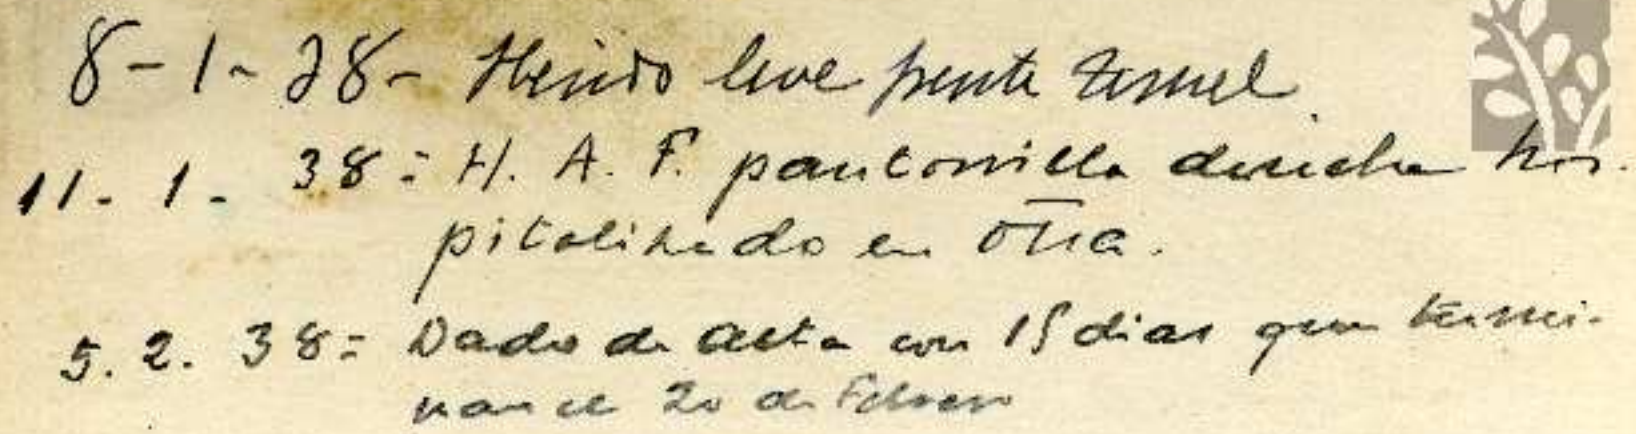 8-1-38- Herido leve frente Teruel
11. 1. 38 = H. A. F. pantorrilla derecha hos-
pitalizado en
5. 2. 38 = Dado de alta con 15 dias que termi-
nan el 20 de Febrero